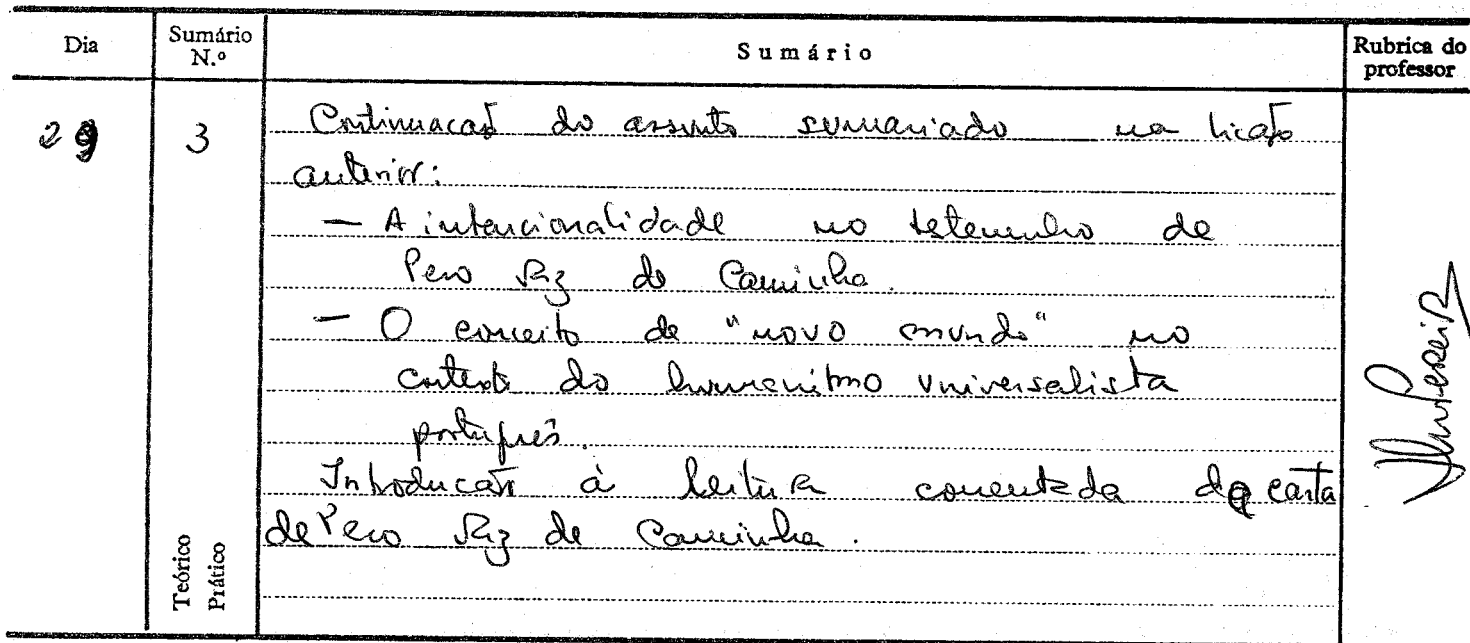 Dia
Sumário N.º
Sumário
Rubrica do professor
29
3
Continuação do assunto sumariado na lição
anterior:
— A intencionalidade no testemunho de
Pero Vaz de Caminha.
— O conceito de "novo mundo" no
contexto do humanismo universalista
português.
Introdução à leitura comentada da carta
de Pero Vaz de Caminha.
Teórico
Prático